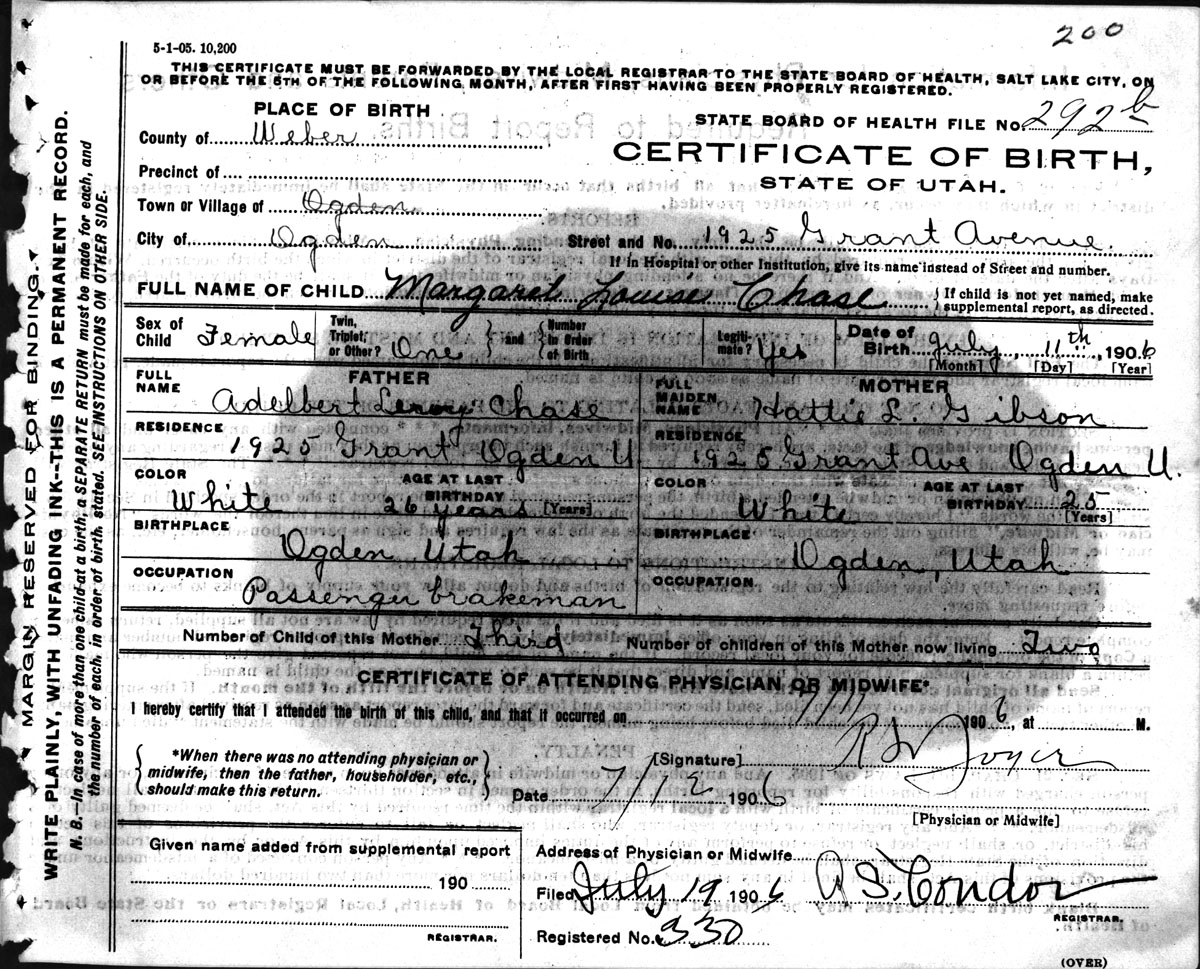 200
5-1-05. 10,200
THIS CERTIFICATE MUST BE FORWARDED BY THE LOCAL REGISTRAR TO THE STATE BOARD OF HEALTH, SALT LAKE CITY, ON
OR BEFORE THE 5TH OF THE FOLLOWING MONTH, AFTER FIRST HAVING BEEN PROPERLY REGISTERED.
PLACE OF BIRTH
STATE BOARD OF HEALTH FILE No. 292 b
County of Weber
CERTIFICATE OF BIRTH,
STATE OF UTAH.
Precinct of
Town or Village of Ogden
City of Ogden Street and No. 1925 Grant Avenue.
If in Hospital or other Institution, give its name instead of Street and number.
FULL NAME OF CHILD Margaret Louise Chase } If child is not yet named, make supplemental report, as directed.
Sex of Child Female Twin, Triplet, or Other? One } and { Number in Order of Birth Legitimate? Yes Date of Birth July, 11th, 1906
[Month] [Day] [Year]
FATHER MOTHER
FULL NAME Adelbert Leroy Chase FULL MAIDEN NAME Hattie L. Gibson
RESIDENCE 1925 Grant Ogden U RESIDENCE 1925 Grant Ave Ogden U.
COLOR White AGE AT LAST BIRTHDAY 26 years [Years] COLOR White AGE AT LAST BIRTHDAY 25 [Years]
BIRTHPLACE Ogden Utah BIRTHPLACE Ogden, Utah
OCCUPATION Passenger brakeman OCCUPATION
Number of Child of this Mother Third Number of children of this Mother now living Two
CERTIFICATE OF ATTENDING PHYSICIAN OR MIDWIFE*
I hereby certify that I attended the birth of this child, and that it occurred on 1906, at M.
{ *When there was no attending physician or midwife, then the father, householder, etc., should make this return. }
[Signature]
Date 7/12 1906
[Physician or Midwife]
Given name added from supplemental report
190
REGISTRAR.
Address of Physician or Midwife
Filed July 19 1906
REGISTRAR.
Registered No. 330
(OVER)
MARGIN RESERVED FOR BINDING.
WRITE PLAINLY, WITH UNFADING INK--THIS IS A PERMANENT RECORD.
N. B.—In case of more than one child at a birth, a SEPARATE RETURN must be made for each, and
the number of each, in order of birth, stated. SEE INSTRUCTIONS ON OTHER SIDE.